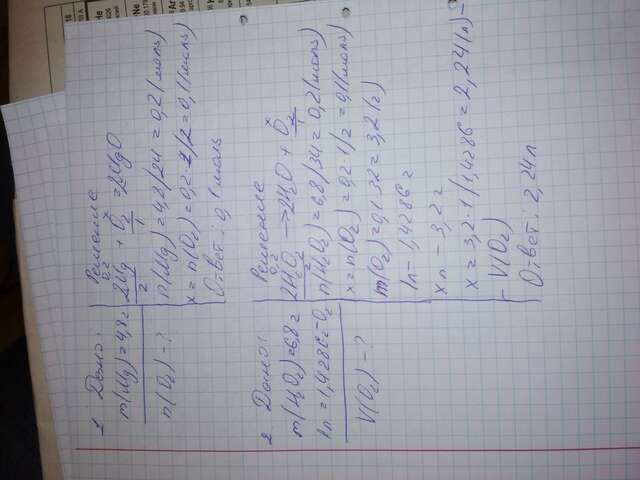 1 Дано:
m(Mg)=4,8г
n(O₂)-?
Решение
0,2 x
2Mg + O₂ = 2MgO
2 1
n(Mg)=4,8/24=0,2(моль)
x=n(O₂)=0,2·1/2=0,1(моль)
Ответ: 0,1 моль
2 Дано:
m(H₂O₂)=6,8г
1л=1,4286г-O₂
V(O₂)-?
Решение
0,2 x
2H₂O₂ → 2H₂O + O₂
2 1
n(H₂O₂)=6,8/34=0,2(моль)
x=n(O₂)=0,2·1/2=0,1(моль)
m(O₂)=0,1·32=3,2(г)
1л-1,4286г
xл-3,2г
x=3,2·1/1,4286=2,24(л)-
-V(O₂)
Ответ: 2,24л